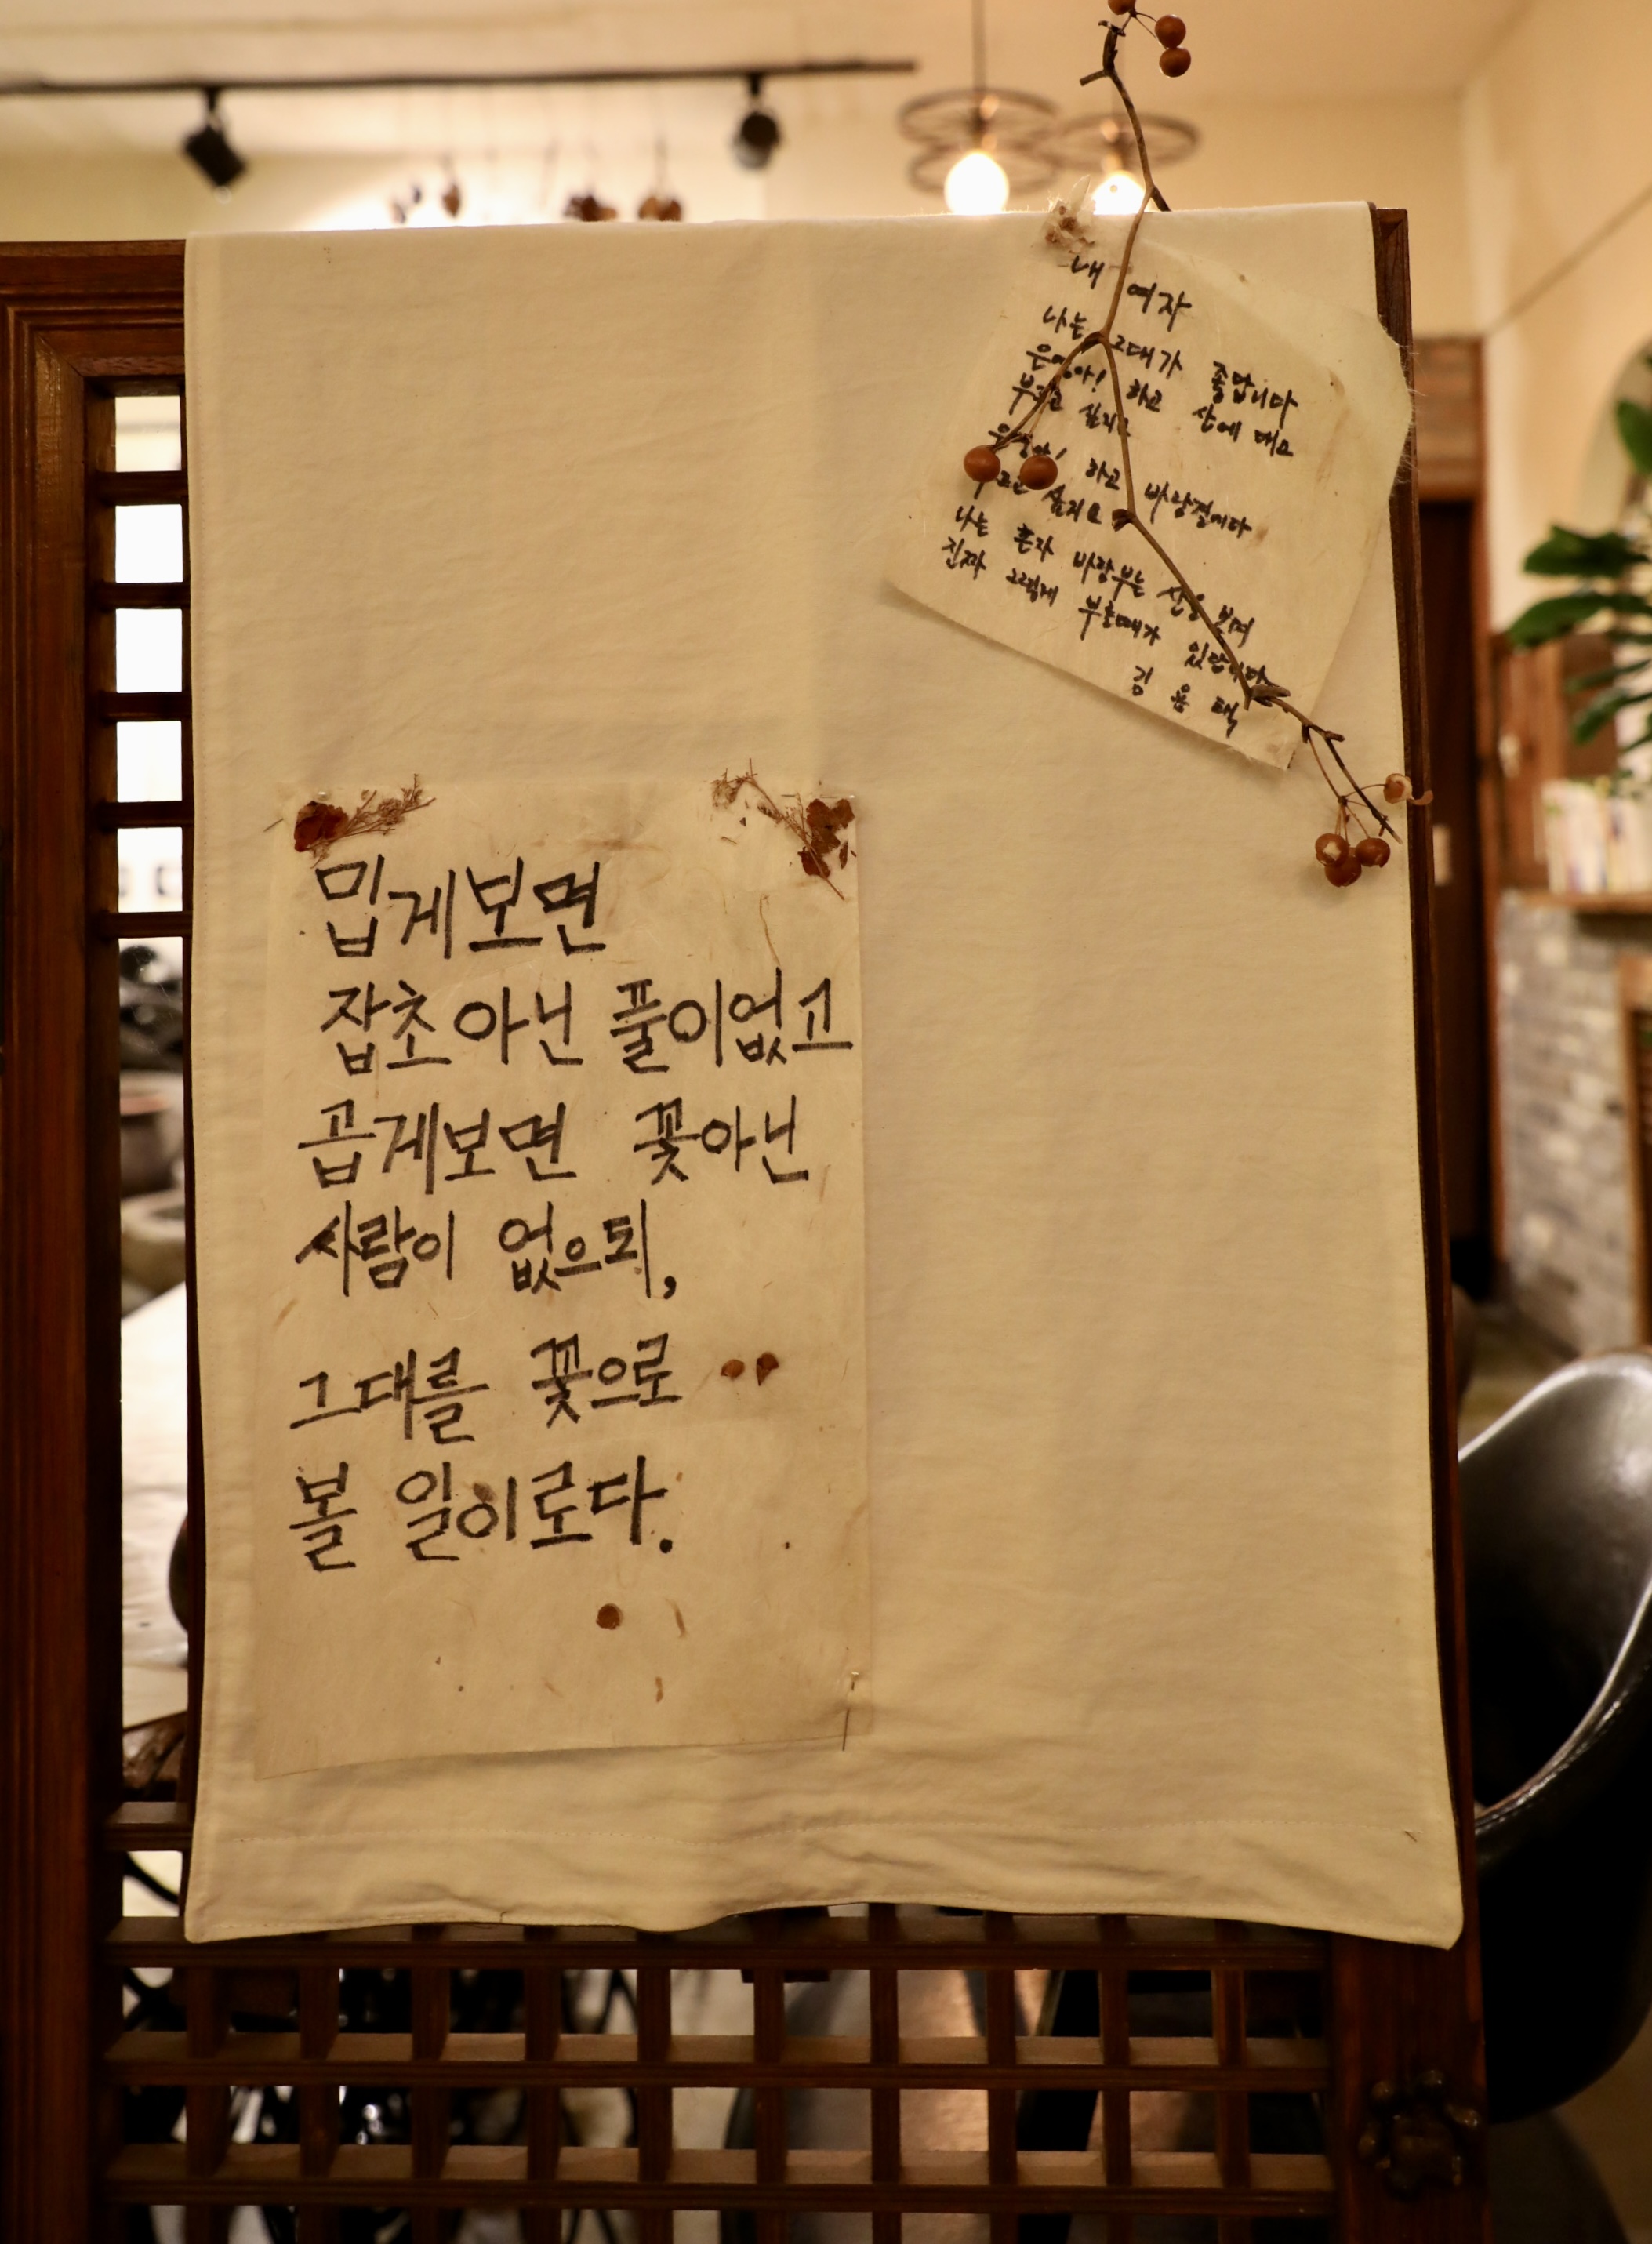 내 여자
나는 그대가 좋답니다
하고 산에 대고
부르고 싶지요
하고 바람결에다
싶지요
나는 혼자 바람부는 산을 보며
진짜 그렇게 부를때가 있답니다
김용택
밉게보면
잡초아닌 풀이없고
곱게보면 꽃아닌
사람이 없으되,
그대를 꽃으로
볼 일이로다.